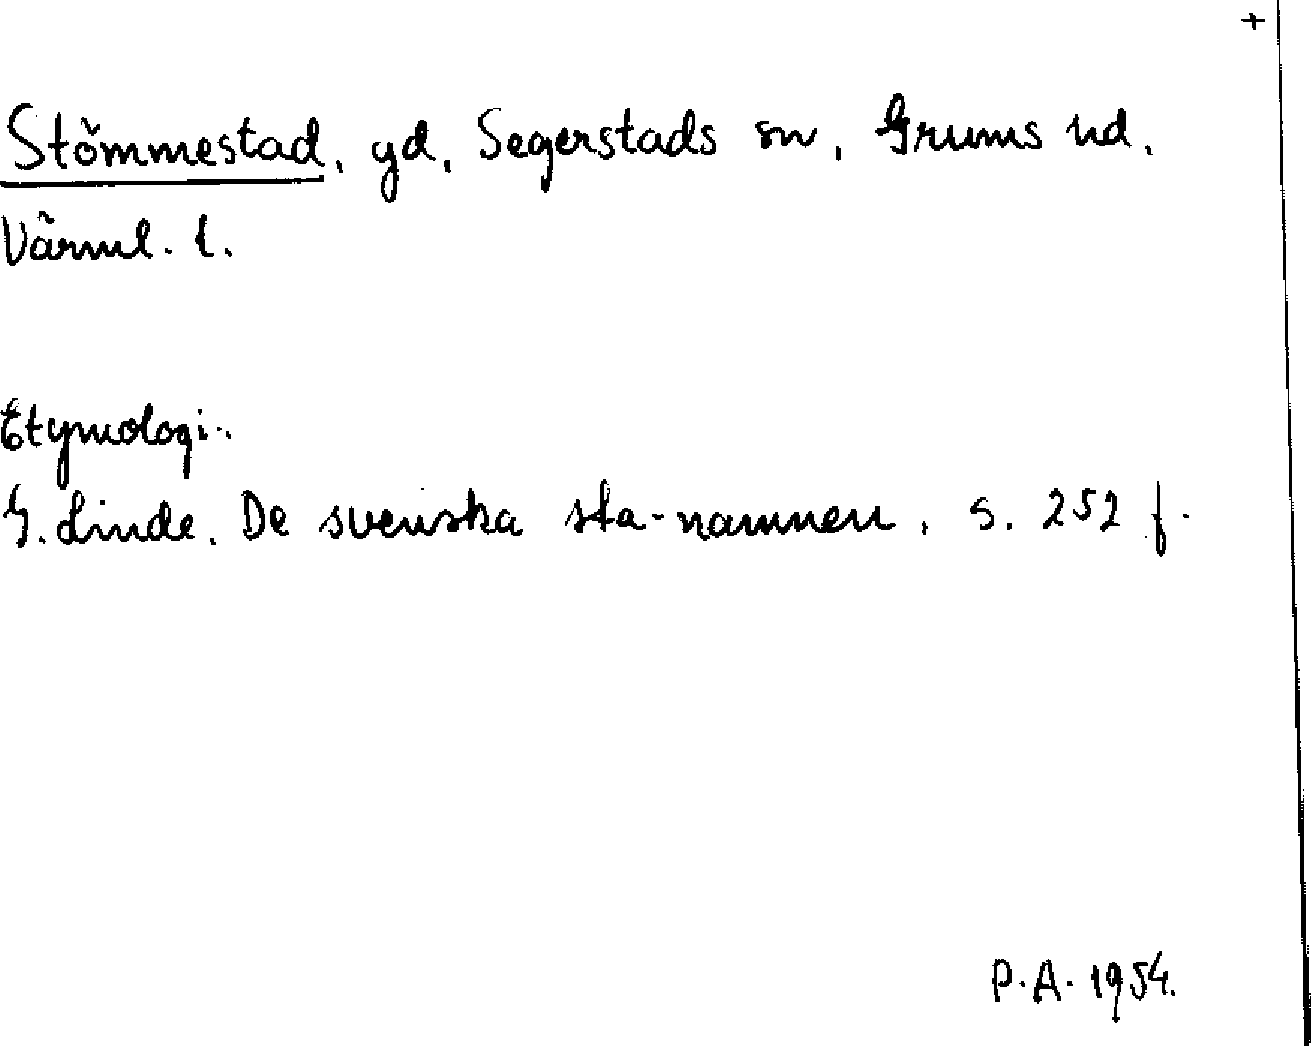 +
Stömmestad, gd, Segerstads sn, Grums hd,
Värml. l.
Etymologi.
G. Linde, De svenska sta-namnen, s. 252 f.
P.A. 1954.